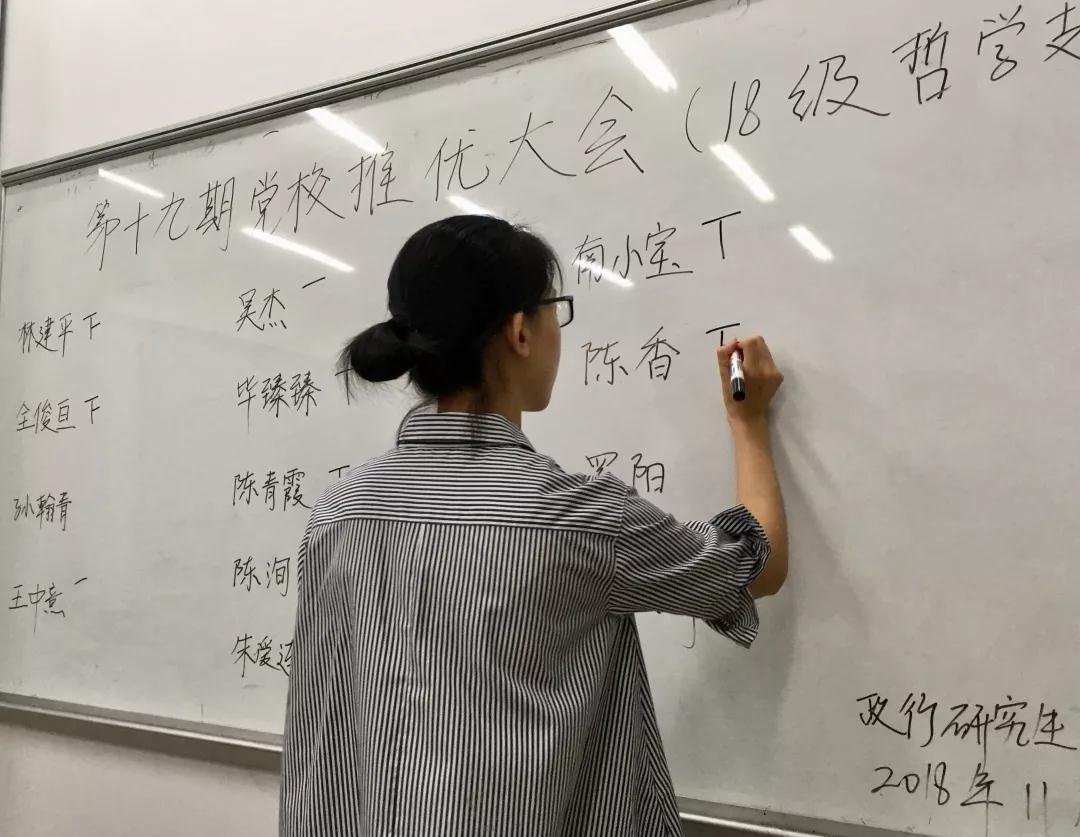 第十九期党校推优大会(18级哲学支
林建平 下
吴杰 一
南小宝 丅
全俊亘 下
毕臻臻
陈香 丅
孙翰青
陈青霞 丅
罗阳
王中意 一
陈洵
朱爱连
政行研究生
2018年11